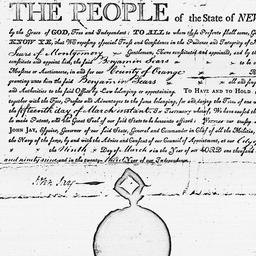 THE PEOPLE of the State of NEW
by the Grace of GOD, Free and Independent: TO ALL to whom these Presents shall come, G
KNOW YE, that We reposing special Trust and Confidence in the Prudence and Integrity of
Sears of Montgomery Gentlemen, Have constituted and appointed, and by these
constitute and appoint him, the said Benjamin Sears
Measures at Auctioneers, in and for our County of Orange
granting unto him the said Benjamin Sears all and
and Authorities to the said Office by Law belonging or appertaining TO HAVE AND TO HOLD
together with the Fees, Profits and Advantages to the same belonging, for and during the Time of one
fifteenth day of March instant. In Testimony whereof, We have caused
be made Patent, and the Great Seal of our said State to be hereunto affixed: Witness our trusty
JOHN JAY, Esquire, Governor of our said State, General and Commander in Chief of all the Militia,
the Navy of the same, by and with the Advice and Consent of our Council of Appointment, at our City of
the Ninth Day of March in the Year of our LORD one thousand
and ninety nine and in the twenty third Year of our Independence.
John Jay